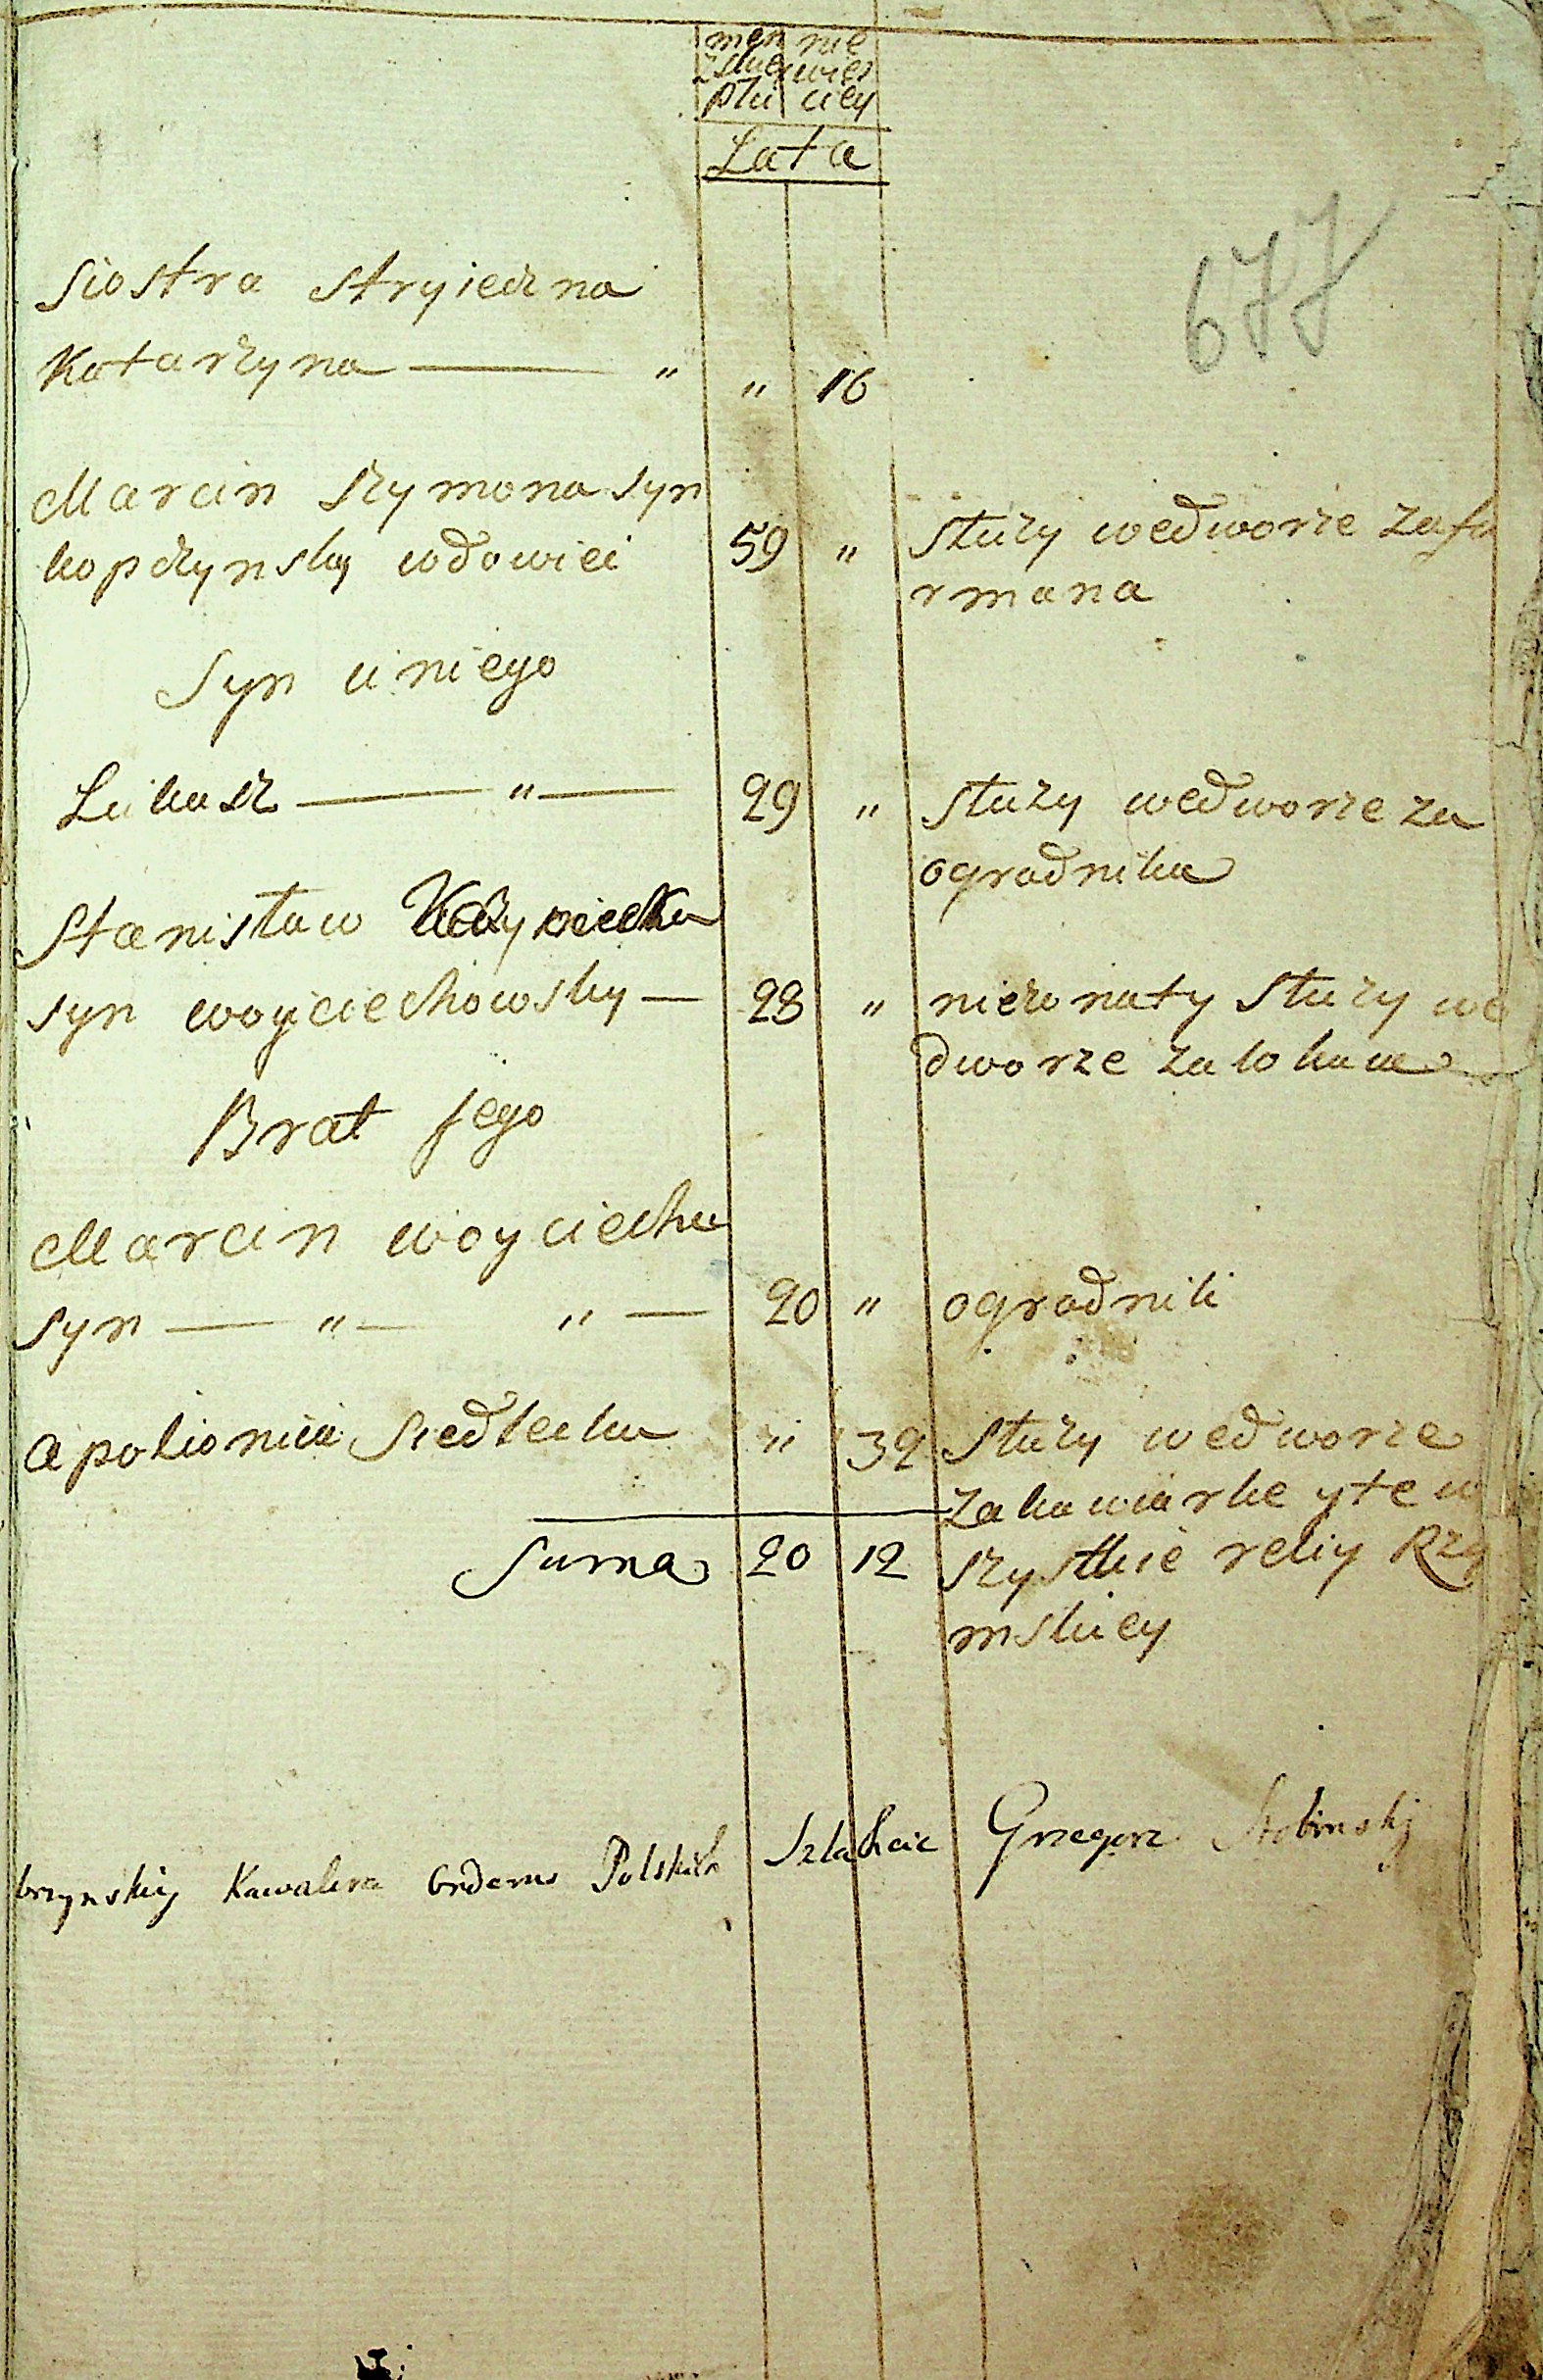 męn nie
zskiey wieś
płci ciey
Lata
677
Siostra Stryieczna
Katarzyna — „ „ 16
Marcin Szymona syn
kopczynsky wdowiec 59 „ Służy wedworze zafu
rmana
Syn u niego
Łukasz — „ — 29 „ Służy wedworze za
ogrodnika
Stanisław
syn woyciechowsky — 28 „ nieżonaty Służy we
dworze za lokaia
Brat Jego
Marcin woyciecha
syn — „ — „ — 20 „ ogrodnik
apolionia Siedlecka „ 39 Służy wedworze
za kawiarkę y te w
Suma 20 12 szystkie reliy Rzy
mskiey
brzynskiy Kawalera Orderów Polskich Szlachcic Grzegorz Stobinskj